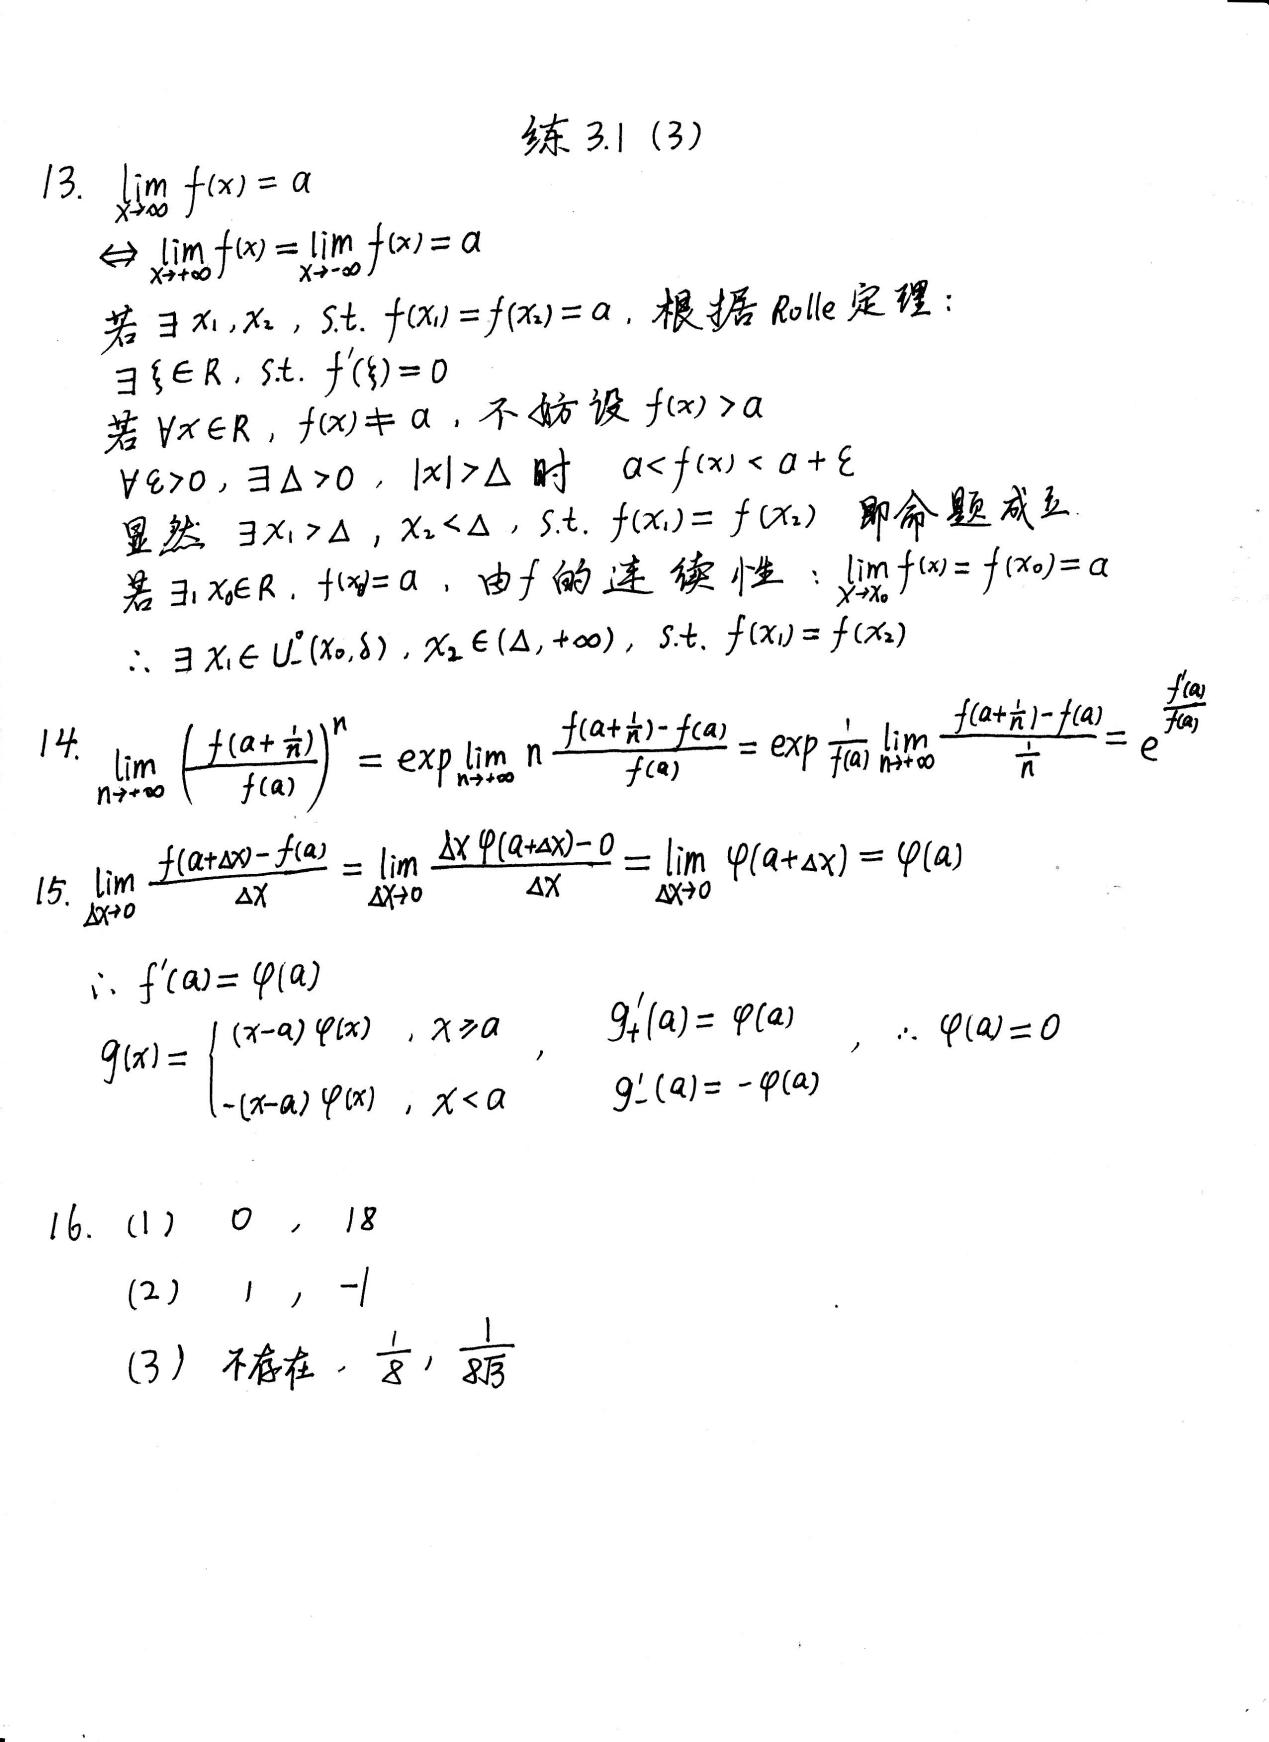 练 3.1 (3)
13. lim_{x→∞} f(x) = a
⇔ lim_{x→+∞} f(x) = lim_{x→-∞} f(x) = a
若 ∃ x₁, x₂, s.t. f(x₁) = f(x₂) = a, 根据 Rolle 定理:
∃ ξ ∈ R, s.t. f'(ξ) = 0
若 ∀x ∈ R, f(x) ≠ a, 不妨设 f(x) > a
∀ε>0, ∃Δ>0, |x|>Δ 时 a < f(x) < a + ε
显然 ∃x₁>Δ, x₂<Δ, s.t. f(x₁) = f(x₂) 即命题成立.
若 ∃₁ x₀∈R, f(x₀) = a, 由 f 的连续性: lim_{x→x₀} f(x) = f(x₀) = a
∴ ∃ x₁ ∈ U₋°(x₀, δ), x₂ ∈ (Δ, +∞), s.t. f(x₁) = f(x₂)
14. lim_{n→+∞} (f(a+1/n)/f(a))^n = exp lim_{n→+∞} n (f(a+1/n) - f(a))/f(a) = exp 1/f(a) lim_{n→+∞} (f(a+1/n) - f(a))/(1/n) = e^{f'(a)/f(a)}
15. lim_{Δx→0} (f(a+Δx) - f(a))/Δx = lim_{Δx→0} (Δx φ(a+Δx) - 0)/Δx = lim_{Δx→0} φ(a+Δx) = φ(a)
∴ f'(a) = φ(a)
g(x) = { (x-a) φ(x), x ≥ a , g'₊(a) = φ(a) , ∴ φ(a) = 0
-(x-a) φ(x), x < a g'₋(a) = -φ(a)
16. (1) 0, 18
(2) 1, -1
(3) 不存在, 1/8, 1/(8√3)